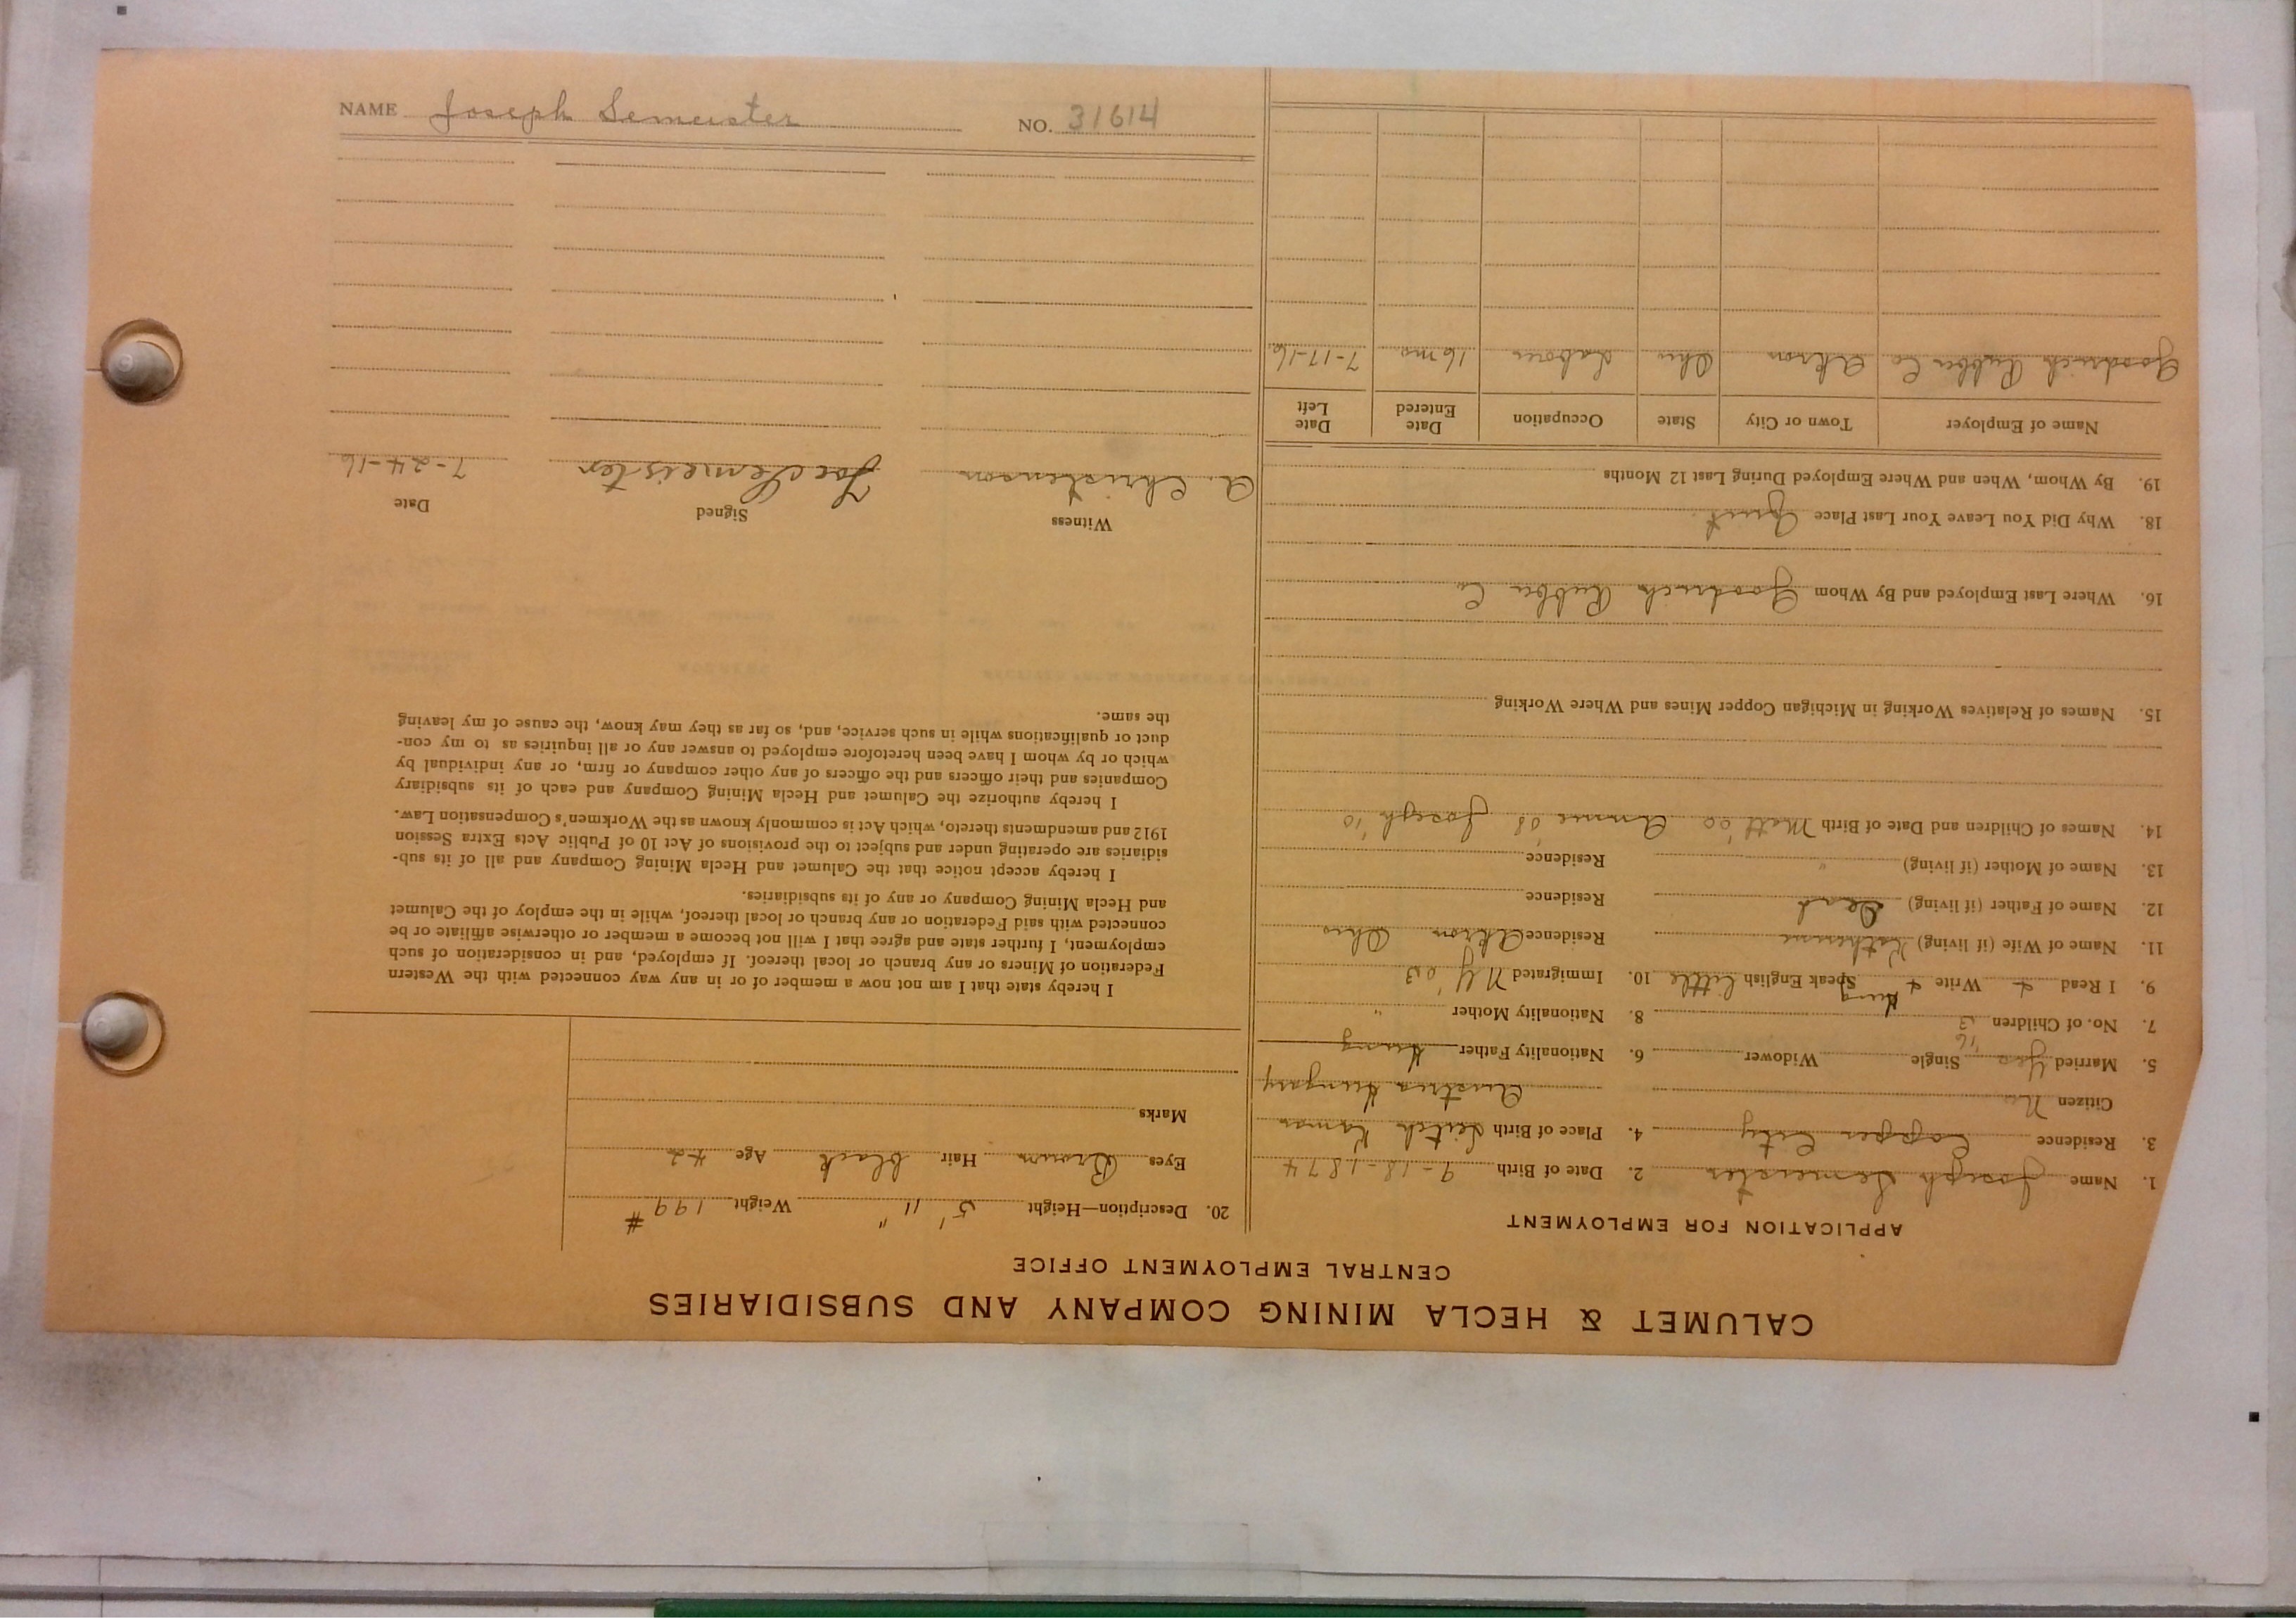 NAME Joseph Semeister NO. 31614
CALUMET & HECLA MINING COMPANY AND SUBSIDIARIES
CENTRAL EMPLOYMENT OFFICE
APPLICATION FOR EMPLOYMENT
1. Name Joseph Semeister 2. Date of Birth 9-18-1874
3. Residence Copper City 4. Place of Birth
Citizen No Austria Hungary
5. Married Yes '16 Single Widower 6. Nationality Father Hung
7. No. of Children 3 8. Nationality Mother "
9. I Read + Write + Hung Speak English little 10. Immigrated N Y '03
11. Name of Wife (if living) Katherine Residence Akron Ohio
12. Name of Father (if living) Dead Residence
13. Name of Mother (if living) " Residence
14. Names of Children and Date of Birth Matt '00 Annie '08 Joseph '10
15. Names of Relatives Working in Michigan Copper Mines and Where Working
16. Where Last Employed and By Whom Goodrich Rubber Co
18. Why Did You Leave Your Last Place Quit
19. By Whom, When and Where Employed During Last 12 Months
Name of Employer Town or City State Occupation Date Entered Date Left
Goodrich Rubber Co Akron Ohio Laborer 16 mo 7-17-16
20. Description—Height 5' 11" Weight 199 #
Eyes Brown Hair black Age 42
Marks
I hereby state that I am not now a member of or in any way connected with the Western
Federation of Miners or any branch or local thereof. If employed, and in consideration of such
employment, I further state and agree that I will not become a member or otherwise affiliate or be
connected with said Federation or any branch or local thereof, while in the employ of the Calumet
and Hecla Mining Company or any of its subsidiaries.
I hereby accept notice that the Calumet and Hecla Mining Company and all of its sub-
sidiaries are operating under and subject to the provisions of Act 10 of Public Acts Extra Session
1912 and amendments thereto, which Act is commonly known as the Workmen's Compensation Law.
I hereby authorize the Calumet and Hecla Mining Company and each of its subsidiary
Companies and their officers and the officers of any other company or firm, or any individual by
which or by whom I have been heretofore employed to answer any or all inquiries as to my con-
duct or qualifications while in such service, and, so far as they may know, the cause of my leaving
the same.
Witness Signed Date
A. Christenson Joe Semeister 7-24-16